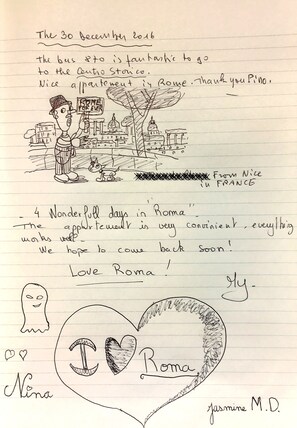 The 30 December 2016
The bus 870 is fantastic to go
to the Centro Storico.
Nice appartement in Rome. Thank you Pino.
ROME
FOR EVER
From Nice
in FRANCE
- 4 Wonderfull days in "Roma"
The appartement is very convinient, everything
works well.
We hope to come back soon!
Love Roma!
I Roma
Nina
Jasmine M.D.